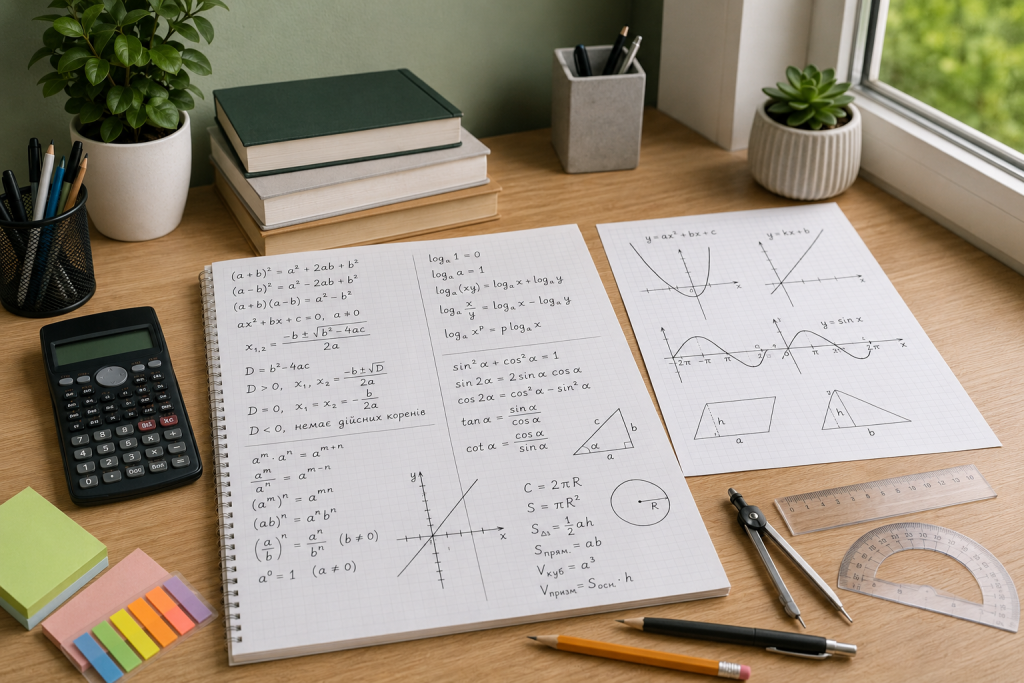 (a+b)² = a² + 2ab + b²
(a-b)² = a² - 2ab + b²
(a+b)(a-b) = a² - b²
ax² + bx + c = 0, a ≠ 0
x₁,₂ = (-b ± √(b² - 4ac)) / 2a
D = b² - 4ac
D > 0, x₁, x₂ = (-b ± √D) / 2a
D = 0, x₁ = x₂ = - b / 2a
D < 0, немає дійсних коренів
aᵐ · aⁿ = aᵐ⁺ⁿ
aᵐ / aⁿ = aᵐ⁻ⁿ
(aᵐ)ⁿ = aᵐⁿ
(ab)ⁿ = aⁿbⁿ
(a / b)ⁿ = aⁿ / bⁿ (b ≠ 0)
a⁰ = 1 (a ≠ 0)
logₐ 1 = 0
logₐ a = 1
logₐ (xy) = logₐ x + logₐ y
logₐ x / y = logₐ x - logₐ y
logₐ xᵖ = p logₐ x
sin² α + cos² α = 1
sin 2α = 2 sin α cos α
cos 2α = cos² α - sin² α
tan α = sin α / cos α
cot α = cos α / sin α
c
b
α
a
y
x
C = 2πR
S = πR²
S△s = 1/2 ah
Sпрям. = ab
Vкуб = a³
Vпризм = Sосн. · h
R
y = ax² + bx + c
y = kx + b
x
y = sin x
x
h
a
h
b